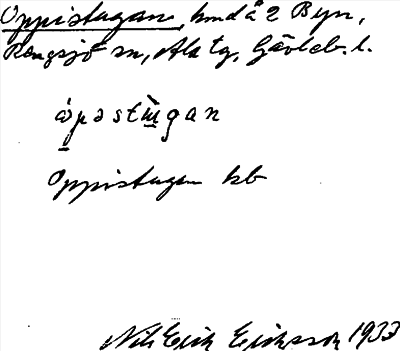 Oppistugan, hmd å 2 Byn,
Rengsjö sn, Ala tg, Gävleb. l.
Oppistugan kb
Nils Erik Eriksson 1933